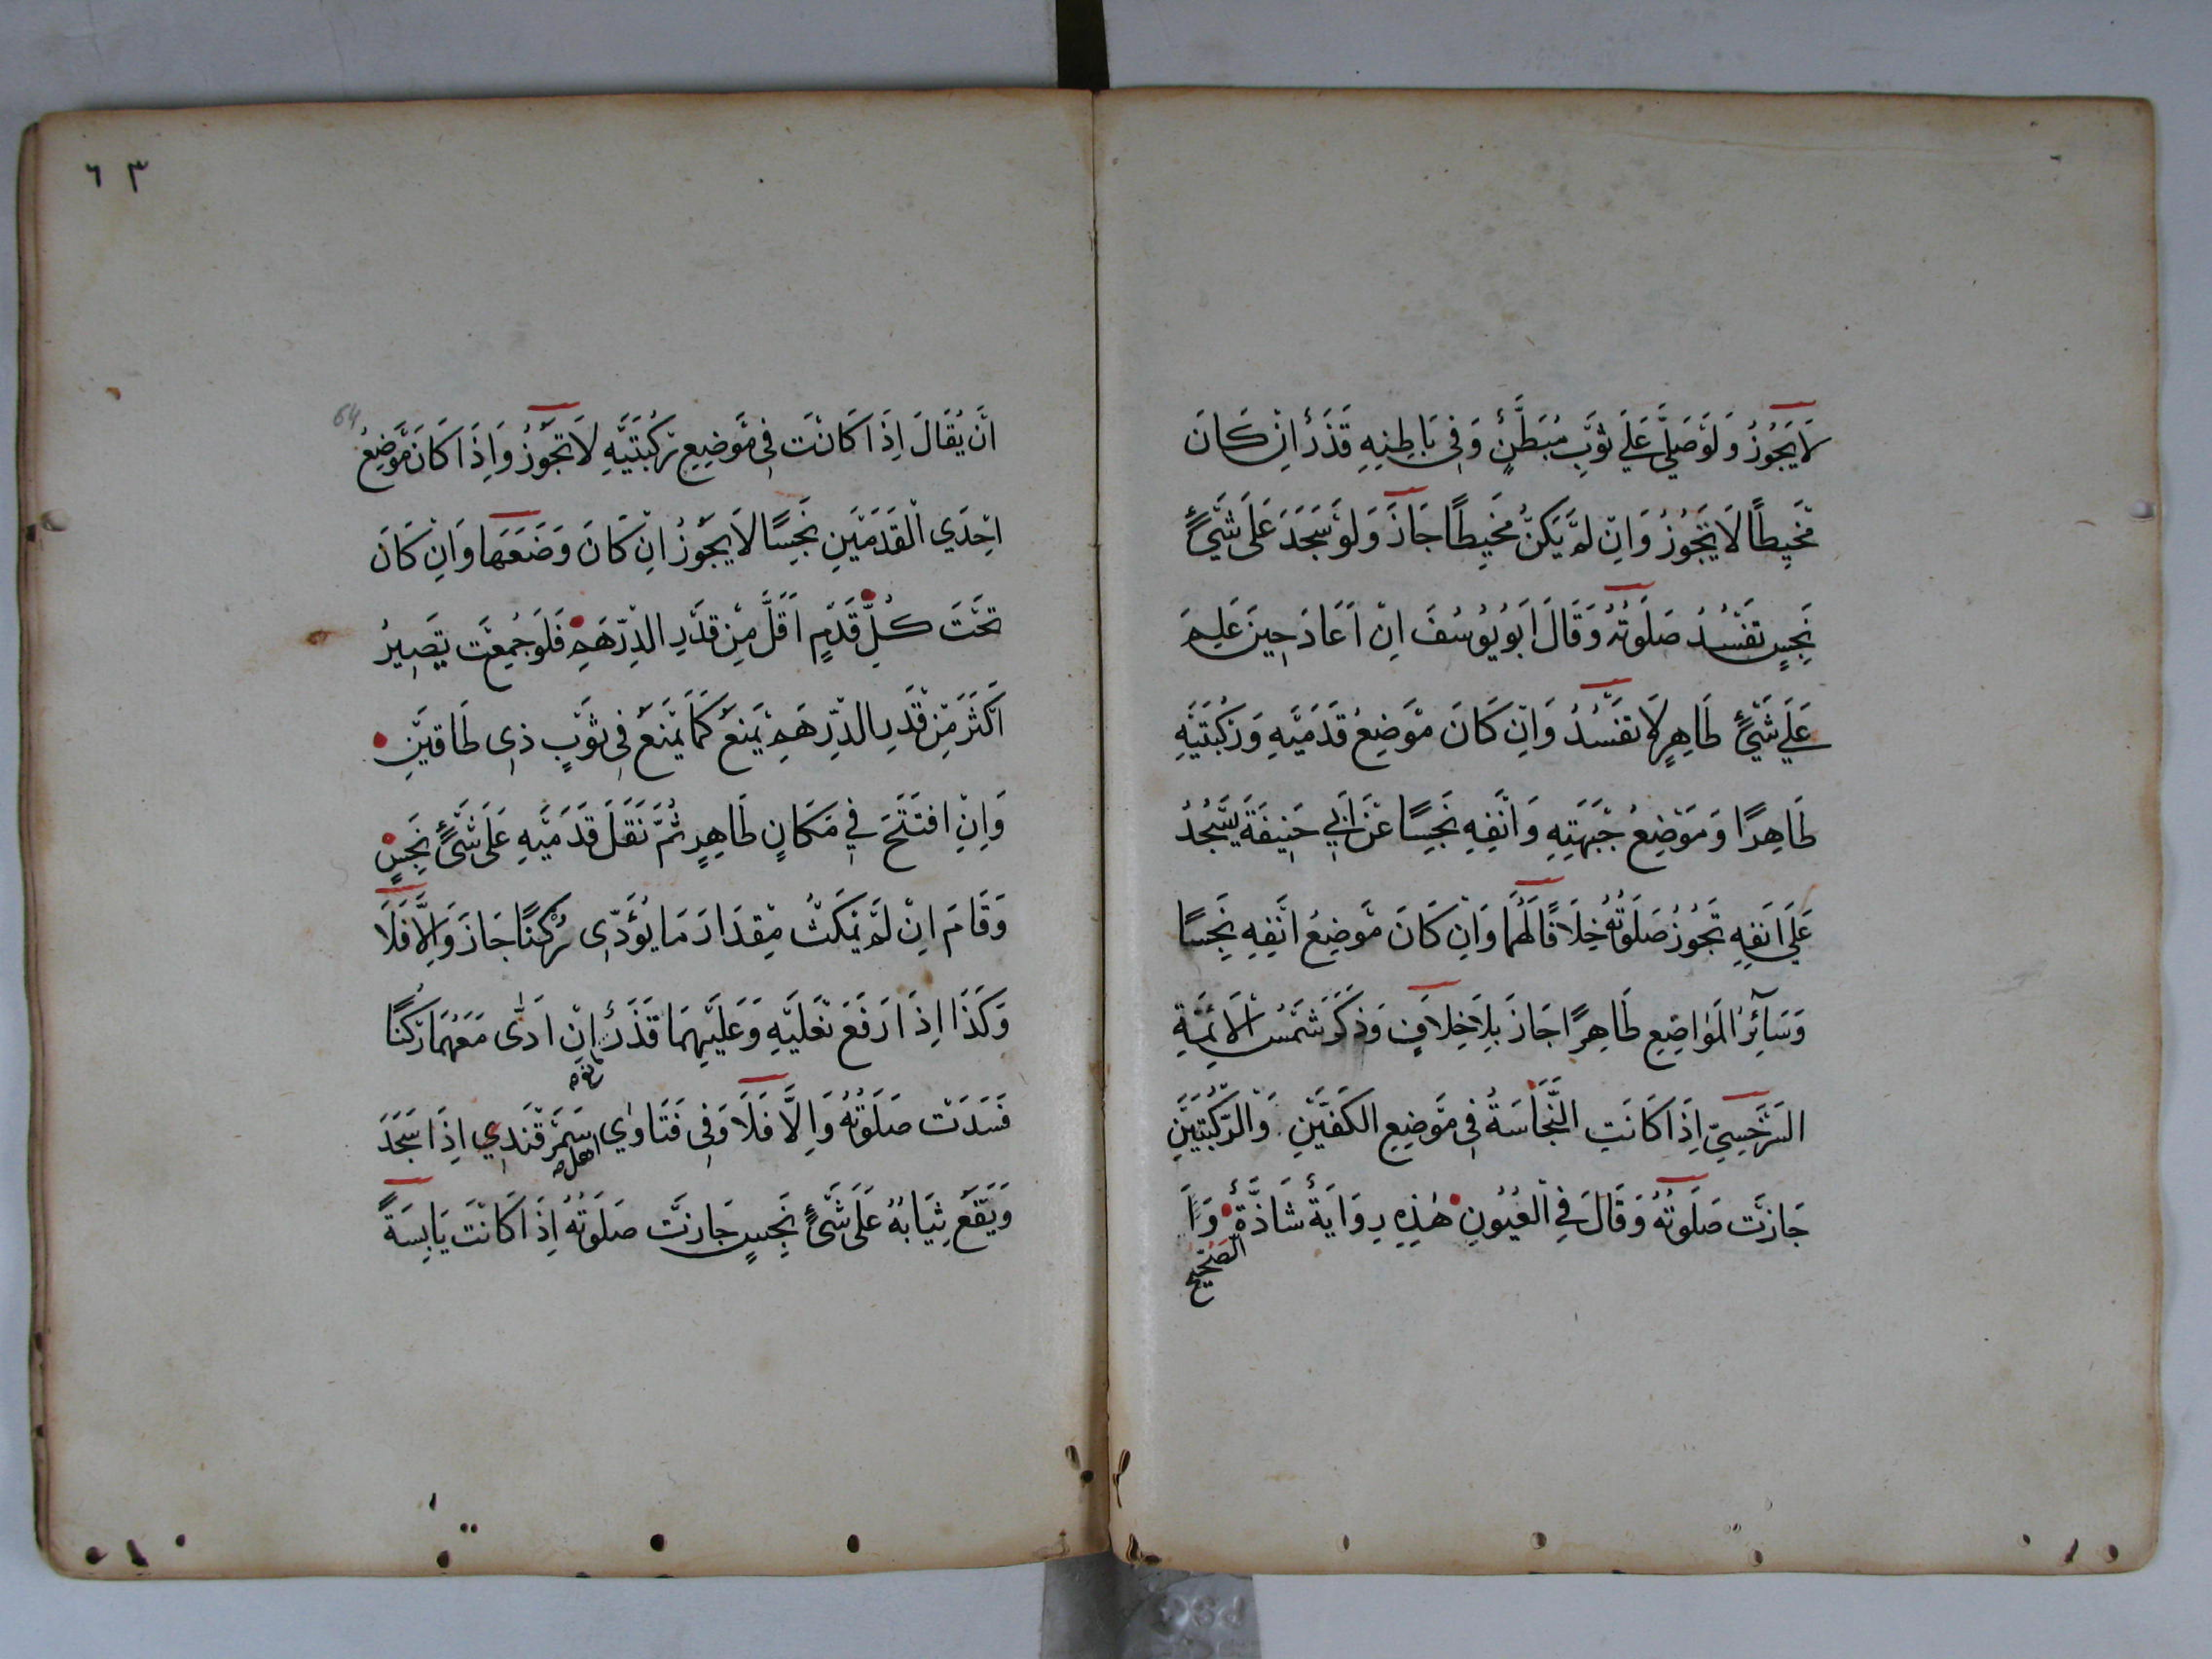 لَا يَجُوزُ وَلَوْ صَلَّى عَلَى ثَوْبٍ مُبَطَّنٍ وَفِي بَاطِنِهِ قَذَرٌ اِنْ كَانَ
مَخِيطًا لَا يَجُوزُ وَاِنْ لَمْ يَكُنْ مَخِيطًا جَازَ وَلَوْ سَجَدَ عَلَى شَيْءٍ
نَجِسٍ تَفْسُدُ صَلَوتُهُ وَقَالَ اَبُو يُوسُفَ اِنْ اَعَادَ حِينَ عَلِمَ
عَلَى شَيْءٍ طَاهِرٍ لَا تَفْسُدُ وَاِنْ كَانَ مَوْضِعُ قَدَمَيْهِ وَرُكْبَتَيْهِ
طَاهِرًا وَمَوْضِعُ جَبْهَتِهِ وَاَنْفِهِ نَجِسًا عَنْ اَبِي حَنِيفَةَ يَسْجُدُ
عَلَى اَنْفِهِ تَجُوزُ صَلَوتُهُ خِلَافًا لَهُمَا وَاِنْ كَانَ مَوْضِعُ اَنْفِهِ نَجِسًا
وَسَآئِرُ الْمَوَاضِعِ طَاهِرًا جَازَ بِلَا خِلَافٍ وَذَكَرَ شَمْسُ الْاَئِمَّةِ
السَّرَخْسِيّ اِذَا كَانَتِ النَّجَاسَةُ فِي مَوْضِعِ الْكَفَّيْنِ وَالرُّكْبَتَيْنِ
جَازَتْ صَلَوتُهُ وَقَالَ فِي الْعُيُونِ هٰذِهِ رِوَايَةٌ شَاذَّةٌ وَا
الصَّحِيحُ
٦٣
64
اَنْ يُقَالَ اِذَا كَانَتْ فِي مَوْضِعِ رُكْبَتَيْهِ لَا تَجُوزُ وَاِذَا كَانَ مَوْضِعُ
اِحْدَى الْقَدَمَيْنِ نَجِسًا لَا يَجُوزُ اِنْ كَانَ وَضَعَهَا وَاِنْ كَانَ
تَحْتَ كُلِّ قَدَمٍ اَقَلَّ مِنْ قَدْرِ الدِّرْهَمِ فَلَوْ جُمِعَتْ يَصِيرُ
اَكْثَرَ مِنْ قَدْرِ الدِّرْهَمِ يَمْنَعُ كَمَا يَمْنَعُ فِي ثَوْبٍ ذِي طَاقَيْنِ
وَاِنِ افْتَتَحَ فِي مَكَانٍ طَاهِرٍ ثُمَّ نَقَلَ قَدَمَيْهِ عَلَى شَيْءٍ نَجِسٍ
وَقَامَ اِنْ لَمْ يَمْكُثْ مِقْدَارَ مَا يُؤَدِّى رُكْنًا جَازَ وَاِلَّا فَلَا
وَكَذَا اِذَا رَفَعَ نَعْلَيْهِ وَعَلَيْهِمَا قَذَرٌ اِنْ اَدّٰى مَعَهُمَا رُكْنًا
فَسَدَتْ صَلَوتُهُ وَاِلَّا فَلَا وَفِي فَتَاوٰى اهل سَمَرْقَنْدِي اِذَا سَجَدَ
وَيَقَعُ ثِيَابُهُ عَلَى شَيْءٍ نَجِسٍ جَازَتْ صَلَوتُهُ اِذَا كَانَتْ يَابِسَةً